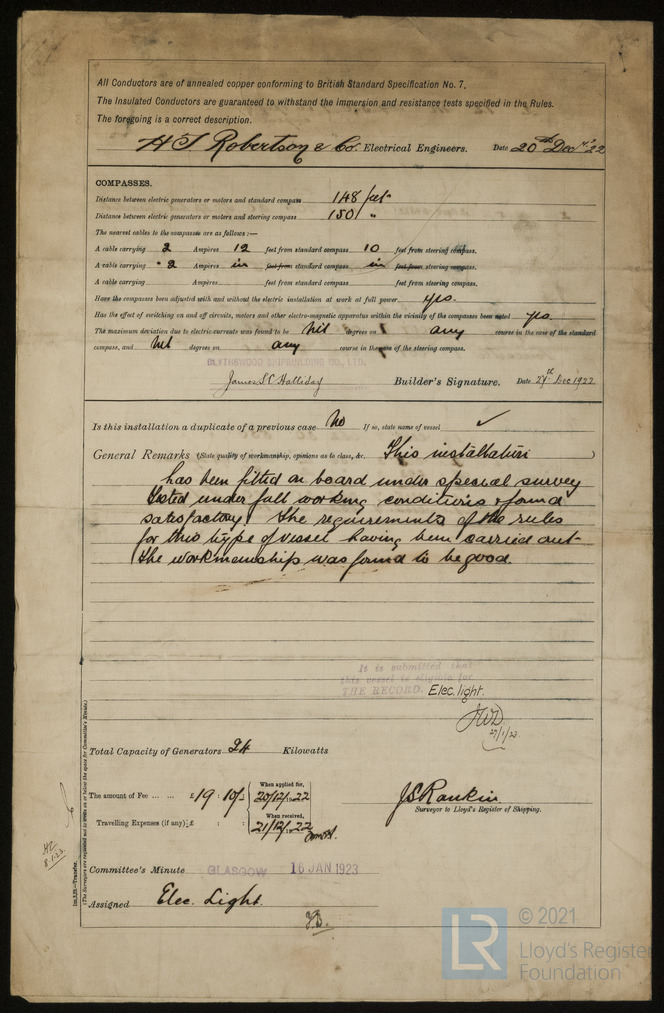 All Conductors are of annealed copper conforming to British Standard Specification No. 7.
The Insulated Conductors are guaranteed to withstand the immersion and resistance tests specified in the Rules.
The foregoing is a correct description.
H S Robertson & Co. Electrical Engineers. Date 20th Dec 22
COMPASSES.
Distance between electric generators or motors and standard compass 148 feet
Distance between electric generators or motors and steering compass 150 "
The nearest cables to the compasses are as follows:—
A cable carrying 2 Ampères 12 feet from standard compass 10 feet from steering compass.
A cable carrying 2 Ampères in feet from standard compass in feet from steering compass.
A cable carrying Ampères feet from standard compass feet from steering compass.
Have the compasses been adjusted with and without the electric installation at work at full power yes.
Has the effect of switching on and off circuits, motors and other electro-magnetic apparatus within the vicinity of the compasses been noted yes.
The maximum deviation due to electric currents was found to be Nil degrees on any course in the case of the standard
compass, and Nil degrees on any course in the case of the steering compass.
BLYTHSWOOD SHIPBUILDING CO., LTD.
James S C Halliday Builder's Signature. Date 27th Dec 1922
Is this installation a duplicate of a previous case No If so, state name of vessel ✓
General Remarks (State quality of workmanship, opinions as to class, &c. This installation )
has been fitted on board under special survey
tested under full working conditions & found
satisfactory. The requirements of the rules
for this type of vessel having been carried out
the workmanship was found to be good.
It is submitted that
this vessel is eligible for
THE RECORD. Elec. light.
27/1/23.
Total Capacity of Generators 24 Kilowatts
The amount of Fee ... ... £ 19 : 10/- : When applied for, 20/12/1922
Travelling Expenses (if any) £ : : When received, 21/12/1922
J S Rankin
Surveyor to Lloyd's Register of Shipping.
8.1.23.
Im.3.19.—Transfer.
(The Surveyors are requested not to write on or below the space for Committee's Minute.)
Committee's Minute GLASGOW 16 JAN 1923
Assigned Elec. Light.
© 2021
LR
Lloyd's Register
Foundation